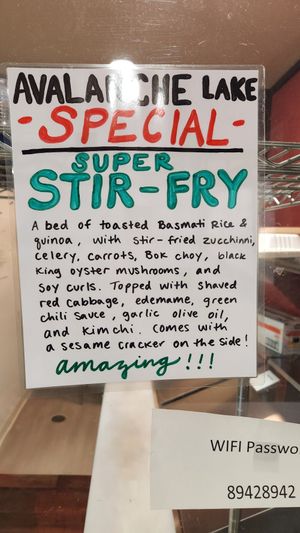 AVALANCHE LAKE
- SPECIAL -
SUPER
STIR-FRY
A bed of toasted Basmati Rice &
quinoa, with stir-fried zucchinni,
celery, carrots, Bok choy, black
King oyster mushrooms, and
soy curls. Topped with shaved
red cabbage, edemame, green
chili sauce, garlic olive oil,
and Kimchi. Comes with
a sesame cracker on the side!
amazing !!!
WIFI Passwo
89428942